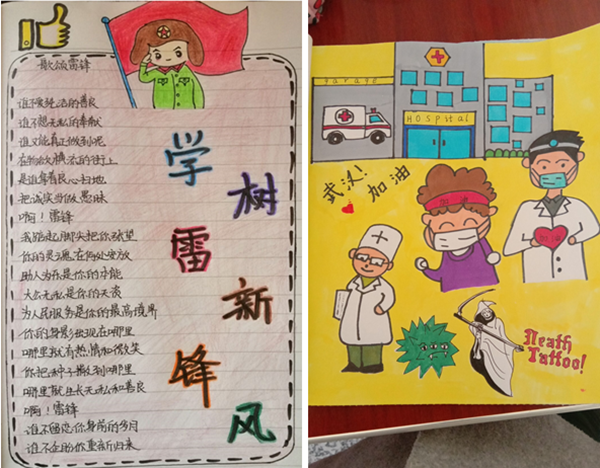 歌颂雷锋
谁不羡纯洁的善良
谁不想无私的奉献
谁又能真正做到呢
在物欲横流的街上
是谁将善良心扫地
把诚实当做愚昧
啊！雷锋
我踮起脚尖把你张望
你的灵魂在何处安放
助人为乐是你的本能
大公无私是你的天资
为人民服务是你的最高境界
你的身影出现在哪里
哪里就有热情和微笑
你把种子撒到哪里
哪里就生长无私和善良
啊！雷锋
谁不留恋你身前的岁月
谁不企盼你重新归来
学
树
雷
新
锋
风
garage
Hospital
武汉！加油
加油
加油
Death
Tattoo!